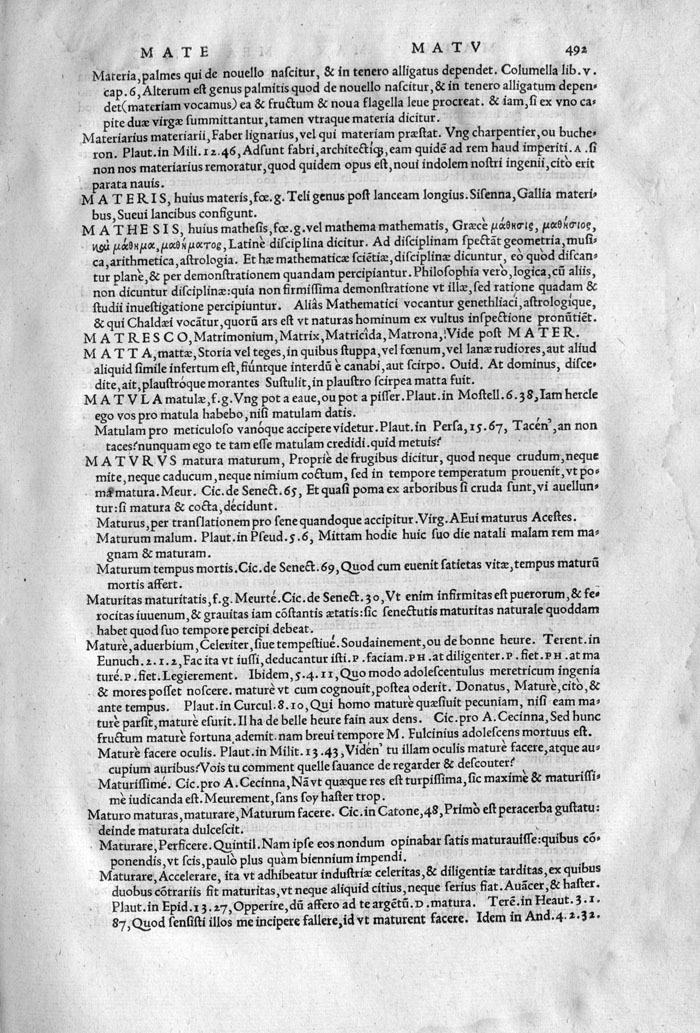 MATE MATV 492
Materia, palmes qui de nouello naſcitur, & in tenero alligatus dependet. Columella lib. v.
cap. 6, Alterum eſt genus palmitis quod de nouello naſcitur, & in tenero alligatum depen-
det(materiam vocamus) ea & fructum & noua flagella leue procreat. & iam, ſi ex vno ca-
pite duæ virgæ ſummittantur, tamen vtraque materia dicitur.
Materiarius materiarii, Faber lignarius, vel qui materiam præſtat. Vng charpentier, ou buche-
ron. Plaut. in Mili. 12.46, Adſunt fabri, architectiq;, eam quidē ad rem haud imperiti. A. ſi
non nos materiarius remoratur, quod quidem opus eſt, noui indolem noſtri ingenii, citò erit
parata nauis.
MATERIS, huius materis, fœ.g. Teli genus poſt lanceam longius. Siſenna, Gallia materi-
bus, Sueui lancibus configunt.
MATHESIS, huius matheſis, fœ.g. vel mathema mathematis, Græcè μάθησις, μαθήσιος,
καὶ μάθημα, μαθήματος, Latinè diſciplina dicitur. Ad diſciplinam ſpectāt geometria, muſi-
ca, arithmetica, aſtrologia. Et hæ mathematicæ ſciētiæ, diſciplinæ dicuntur, eò quòd diſcan-
tur planè, & per demonſtrationem quandam percipiantur. Philoſophia verò, logica, cū aliis,
non dicuntur diſciplinæ: quia non firmiſſima demonſtratione vt illæ, ſed ratione quadam &
ſtudii inueſtigatione percipiuntur. Aliâs Mathematici vocantur genethliaci, aſtrologíque,
& qui Chaldæi vocātur, quorū ars eſt vt naturas hominum ex vultus inſpectione pronūtiēt.
MATRESCO, Matrimonium, Matrix, Matricîda, Matrona, Vide poſt MATER.
MATTA, mattæ, Storia vel teges, in quibus ſtuppa, vel fœnum, vel lanæ rudiores, aut aliud
aliquid ſimile infertum eſt, fiúntque interdū è canabi, aut ſcirpo. Ouid. At dominus, diſce-
dite, ait, plauſtróque morantes Suſtulit, in plauſtro ſcirpea matta fuit.
MATVLA matulæ, f.g. Vng pot a eaue, ou pot a piſſer. Plaut. in Moſtell. 6.38, Iam hercle
ego vos pro matula habebo, niſi matulam datis.
Matulam pro meticuloſo vanóque accipere videtur. Plaut. in Perſa, 15.67, Tacén', an non
taces? nunquam ego te tam eſſe matulam credidi. quid metuis?
MATVRVS matura maturum, Propriè de frugibus dicitur, quod neque crudum, neque
mite, neque caducum, neque nimium coctum, ſed in tempore temperatum prouenit, vt po-
ma matura. Meur. Cic. de Senect. 65, Et quaſi poma ex arboribus ſi cruda ſunt, vi auellun-
tur: ſi matura & cocta, décidunt.
Maturus, per tranſlationem pro ſene quandoque accipitur. Virg. AEui maturus Aceſtes.
Maturum malum. Plaut. in Pſeud. 5.6, Mittam hodie huic ſuo die natali malam rem ma-
gnam & maturam.
Maturum tempus mortis. Cic. de Senect. 69, Quod cum euenit ſatietas vitæ, tempus maturū
mortis affert.
Maturitas maturitatis, f.g. Meurté. Cic. de Senect. 30, Vt enim infirmitas eſt puerorum, & fe-
rocitas iuuenum, & grauitas iam cōſtantis ætatis: ſic ſenectutis maturitas naturale quoddam
habet quod ſuo tempore percipi debeat.
Maturè, aduerbium, Celeriter, ſiue tempeſtiué. Soudainement, ou de bonne heure. Terent. in
Eunuch. 2.1.2, Fac ita vt iuſſi, deducantur iſti. P. faciam. PH. at diligenter. P. fiet. PH. at ma
turé. P. fiet. Legierement. Ibidem, 5.4.11, Quo modo adoleſcentulus meretricum ingenia
& mores poſſet noſcere. maturè vt cum cognouit, poſtea oderit. Donatus, Maturè, citò, &
ante tempus. Plaut. in Curcul. 8.10, Qui homo maturè quæſiuit pecuniam, niſi eam ma-
turè parſit, maturè eſurit. Il ha de belle heure fain aux dens. Cic. pro A. Cecinna, Sed hunc
fructum maturè fortuna ademit. nam breui tempore M. Fulcinius adoleſcens mortuus eſt.
Maturè facere oculis. Plaut. in Milit. 13.43, Vidén' tu illam oculis maturè facere, atque au-
cupium auribus? Vois tu comment quelle ſauance de regarder & deſcouter?
Maturiſſimé. Cic. pro A. Cecinna, Nāvt quæque res eſt turpiſſima, ſic maximè & maturiſſi-
mè iudicanda eſt. Meurement, ſans ſoy haſter trop.
Maturo maturas, maturare, Maturum facere. Cic. in Catone, 48, Primò eſt peracerba guſtatu:
deinde maturata dulceſcit.
Maturare, Perficere. Quintil. Nam ipſe eos nondum opinabar ſatis maturauiſſe: quibus cō-
ponendis, vt ſcis, paulò plus quàm biennium impendi.
Maturare, Accelerare, ita vt adhibeatur induſtriæ celeritas, & diligentiæ tarditas, ex quibus
duobus cōtrariis fit maturitas, vt neque aliquid citius, neque ſerius fiat. Auācer, & haſter.
Plaut. in Epid. 13.27, Opperire, dū affero ad te argētū. D. matura. Terē. in Heaut. 3.1.
87, Quod ſenſiſti illos me incipere fallere, id vt maturent facere. Idem in And. 4.2.32.